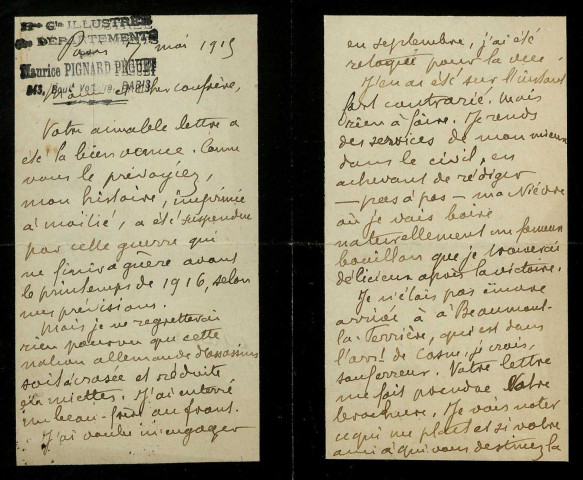 Gde ILLUSTRÉE
des DÉPARTEMENTS
Paris 7 mai 1915
Maurice PIGNARD PÉGUET
Boul. Voltaire, PARIS
et cher confrère,
Votre aimable lettre a
été la bien venue. Comme
vous le prévoyiez,
mon histoire, imprimée
à moitié, a été suspendue
par cette guerre qui
ne finira guère avant
le printemps de 1916, selon
mes prévisions.
Mais je ne regretterai
rien pourvu que cette
nation allemande d'assassins
soit écrasée et réduite
en miettes. J'ai enterré
un beau-frère au front.
J'ai voulu m'engager
en septembre, j'ai été
retoqué pour la vue.
J'en ai été sur l'instant
fort contrarié, mais
rien à faire. Je rends
des services de mon mieux
dans le civil, en
achevant de rédiger
— pas à pas — ma Nièvre
où je vais boire
naturellement un fameux
bouillon que je trouverai
délicieux après la victoire.
Je n'étais pas encore
arrivé à Beaumont-
la-Ferrière, qui est dans
l'arrt de Cosne, je crois,
sauf erreur. Votre lettre
me fait prendre votre
brochure. Je vais noter
ce qui me plaît et si votre
ami à qui vous destinez la